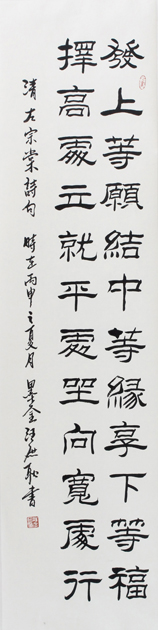 發上等願結中等緣享下等福
擇高處立就平處坐向寬處行
清左宗棠詩句 時在丙申之夏月 墨金
書